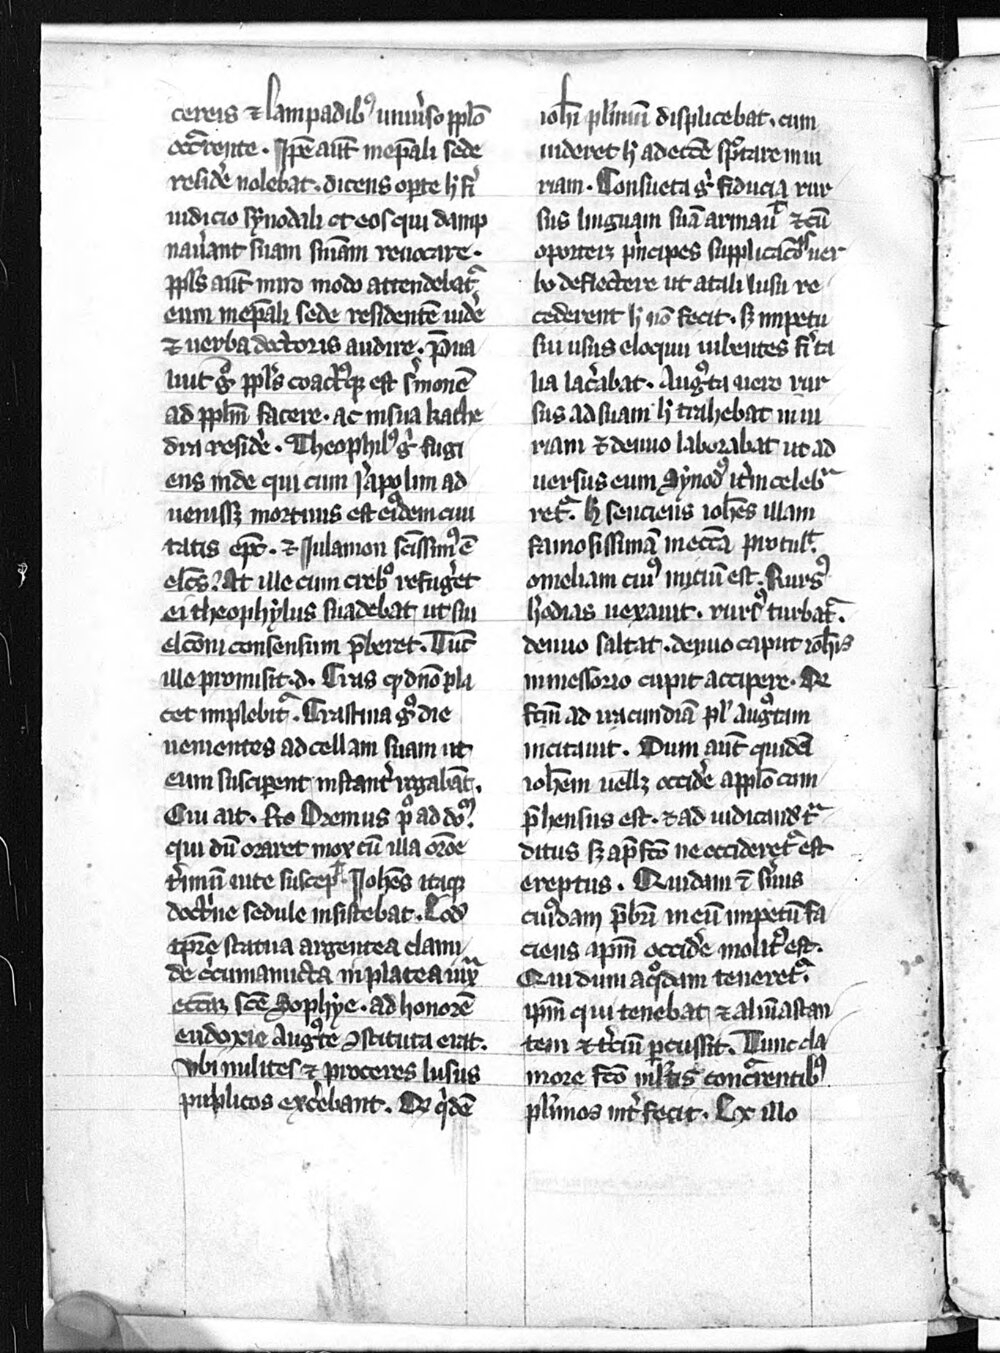 cereis ⁊ lampadibꝰ uniuˀso ppl̄o
occr̄rente. Ip̄e aut̄ in ep̄ali sede
residˀe nolebat. dicens oport̄e h̄ fiˀ
iudicio synodali et eos qui damp
nauˀant suam sn̄iam reuocare.
ppl̄s aut̄ miro modo attendebat᷑
eum in ep̄ali sede residentē uidˀe
⁊ uerba doctoris audire. P̄ua
luit gͦ ppl̄s coactꝰqꝫ est sˀmonē
ad ppl̄m facere. ac in sua kathe
dra residˀe. Theophilꝰ gͥ fugi
ens inde qui cum Iˀapolim ad
uenissꝫ mortuus est eiˀdem ciui
tatis ep̄c. ⁊ Iulamon sc̄issimꝰ ē
elc̄s. At ille cum crebͦ refugˀet
ei theophylus suadebat ut sui
elc̄oni consensum p̄beret. Tūc
ille promisit .d. Cras qͥ dn̄o pla
cet implebit᷑. Crastina gͦ die
uenientes ad cellam suam ut
eum suscip̄ent instantˀ rogabāt.
Cui ait. Oremus pͥͦ ad dn̄m
qui dū oraret mox cū illa orōe
tˀminū uite suscepͭ. Ioh̄es itaqꝫ
doctˀne sedule insistebat. Eod̄
tp̄re statua argentea clami
de cˀcumamicta in platea iux᷑
ecc̄aꝫ sc̄e Sophye. ad honorē
eudoxie augꝰte ꝯstituta erat.
vbi milites ⁊ proceres lusus
puplicos excˀebant. Qͦ qͥdē
ioh̄i pl̄imū displicebat. cum
uideret h̄ ad ecc̄e spͨtare iniu
riam. Consueta gͥ fiducia rur
sus linguam suā armauiͭ ⁊ cū
oporteꝫ pͥncipes supplicac̄ōis uer
bo deflectere ut a tali lusu re
cederent h̄ nō fecit. sꝫ impetu
sui usus eloquii iubentes fiˀi ta
lia lacˀabat. Augꝰta uero rur
sus ad suam h̄ trahebat iniu
riam ⁊ denuo laborabat ut ad
uersus eum Synodꝰ itˀum celebr᷑
ret᷑. h̄ senciens ioh̄es illam
famosissimā in ecc̄a protulͭ.
omeliam cuiꝰ iniciū est. Rursꝰ
hˀodias uexauit. rursꝰ turbat᷑.
denuo saltat. denuo caput ioh̄is
in messorio cupit accipere. Qͦ
fc̄m ad iracundiā plˀ augꝰtam
incitauit. Dum aut̄ quidā
ioh̄em uellꝫ occidˀe a ppl̄o com
p̄hensus est. ⁊ ad iudicand᷑ tͣ
ditus sꝫ a p̄fc̄o ne occideret᷑ est
ereptus. Quidam ē sˀuus
cuiꝰdam p̄bri in eū impetū fa
ciens ip̄m occidˀe molitꝰ est.
Qui dum a qͦdam teneret᷑.
ip̄m qui tenebat ⁊ aliū astan
tem ⁊ tˀciū p̄cussit. Tunc cla
more fc̄o ml̄tis concr̄rentibꝰ
pl̄imos intˀfecit. Ex illo